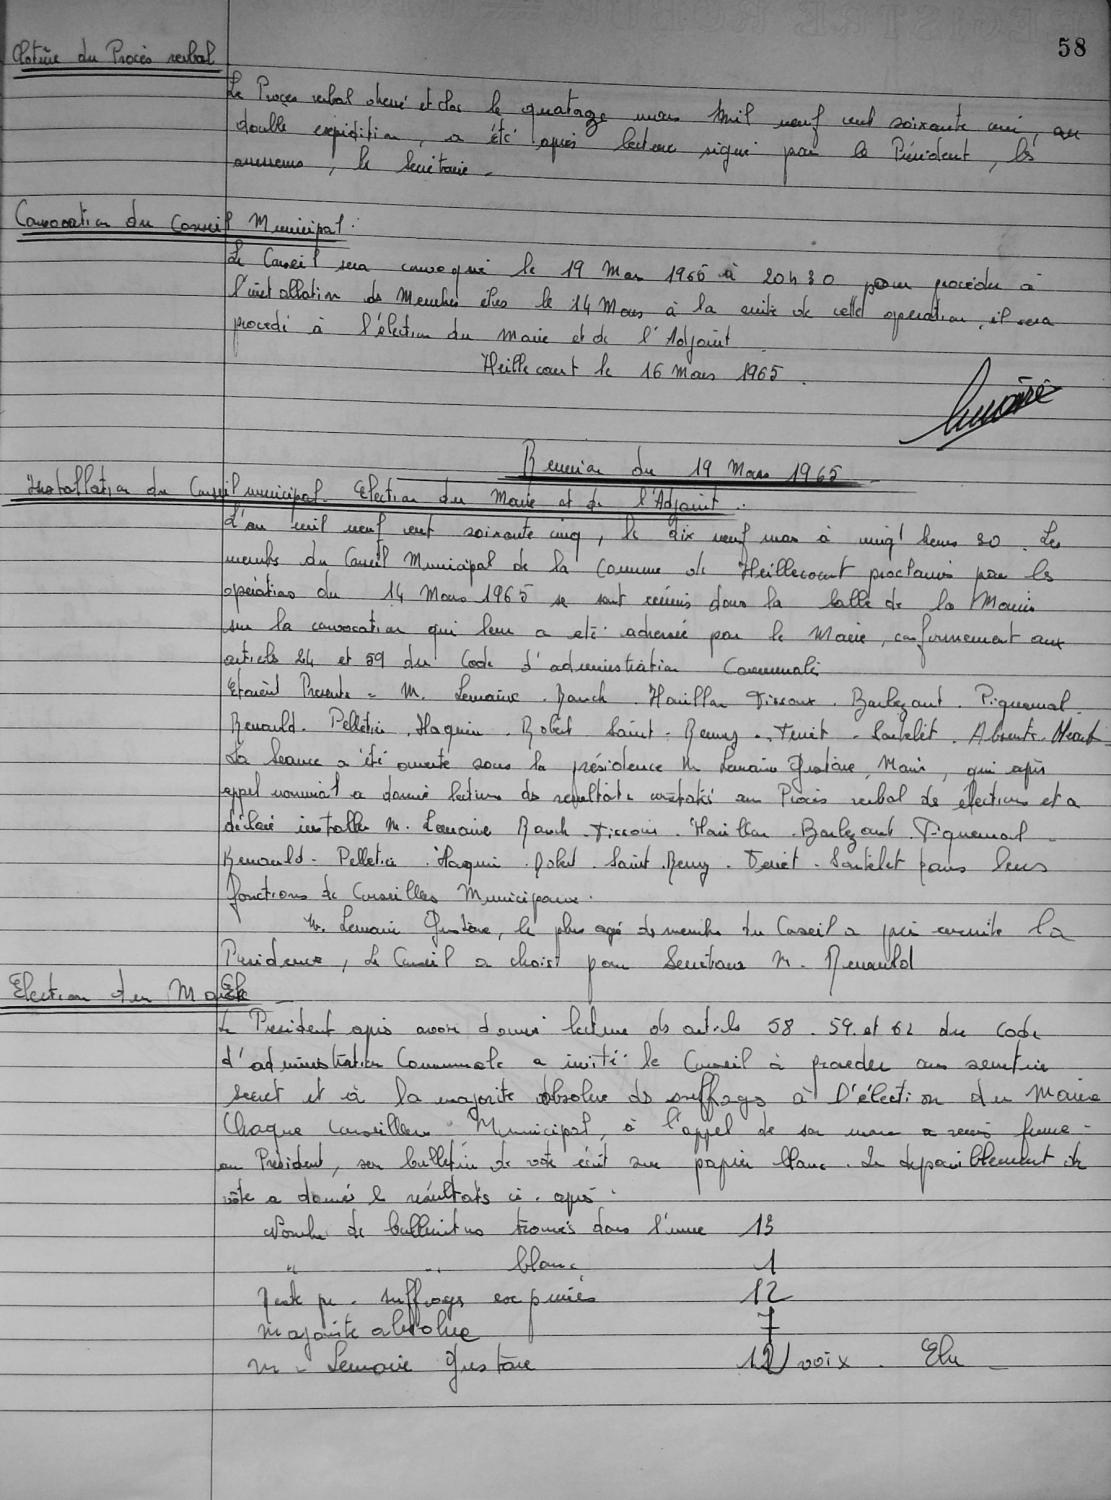 58
Clôture du Procès verbal
Le Procès verbal dressé et clos le quatorze mars mil neuf cent soixante cinq, en
double expédition, a été après lecture signé par le Président, les
assesseurs, le Secrétaire -
Convocation du Conseil Municipal :
Le Conseil sera convoqué le 19 Mars 1965 à 20h30 pour procéder à
l'installation des Membres élus le 14 Mars à la suite de cette opération, il sera
procédé à l'élection du Maire et de l'Adjoint
Heillecourt le 16 Mars 1965.
Lemoire
Réunion du 19 Mars 1965
Installation du Conseil municipal - Election du Maire et de l'Adjoint :
L'an mil neuf cent soixante cinq, le dix neuf mars à vingt heures 30. Les
membres du Conseil Municipal de la Commune de Heillecourt proclamés par les
opérations du 14 Mars 1965 se sont réunis dans la Salle de la Mairie
sur la convocation qui leur a été adressée par le Maire, conformement aux
articles 24 et 59 du Code d'administration Communale
Etaient Presents - M. Lemoire . Ranch . Haillan Tissoux . Barlegant . Piquemal.
Renauld . Pelletier . Haquin . Robert Saint . Remy . Teniet . Santelet . Absents
La Seance a été ouverte sous la présidence M. Lemoire Gustave, Maire, qui après
appel nominal a donné lecture des resultats constatés au Procès verbal des élections et a
déclaré installés M. Lemoire Ranch . Tissoux . Haillan . Barlegant . Piquemal -
Renauld - Pelletier . Haquin . Robert . Saint . Remy . Teniet . Santelet dans leurs
fonctions de Conseillers Municipaux.
M. Lemoire Gustave, le plus agé des membres du Conseil a pris ensuite la
Présidence, Le Conseil a choisi pour Secrétaire M. Renauld
Election du Maire
Le President après avoir donné lecture des articles 58 . 59 . et 62 du Code
d'administration Communale a invité le Conseil à procéder au scrutin
secret et à la majorité absolue des suffrages à l'élection du Maire
Chaque Conseiller Municipal, à l'appel de son nom a remis fermé -
au Président, son bulletin de vote écrit sur papier blanc. Le depouiblement de
vote a donné les résultats ci. après :
Nombre de bulletins trouvés dans l'urne 13
" " blanc 1
Reste pr. suffrages exprimés 12
majorité absolue 7
M - Lemoire Gustave 12 voix . Elu -